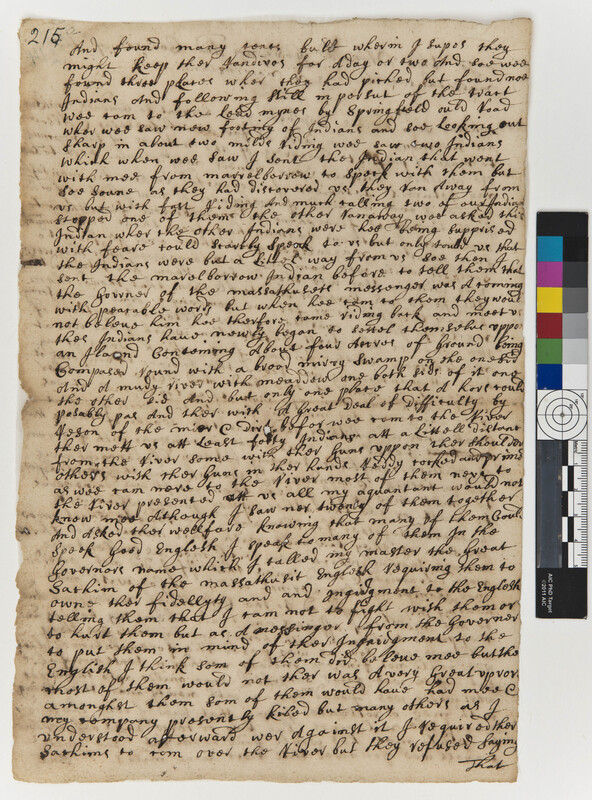 215
And found many tents bult wherin I supos they
might keep ther Sandivos for a day or two And soe wee
found three places wher they had piched but found noe
Indians And following still in persut of the tract
wee com to the Lead mynes by Springfeeld ould Road
wher wee saw new footing of Indians and soe Looking out
sharp in about two milds riding wee saw two Indians
which when wee saw I sent the Indian that went
with mee from marrelborrow to speek with them but
soe soune as they had discovered vs they Ran Away from
vs but with fast Riding And much calling two of our Indians
stopped one of them the other Ranaway wee asked this
Indian wher the other Indians were hee being supprised
with feare could scarcly speak to vs but only tould vs that
the Indians were but a littel way from vs soe then I
sent the marelborrow Indian before to tell them that
the Governer of the massathusets messenger was A coming
with peacable words but when hee com to them they would
not beleue him hee therfore came riding back and meet vs
thes Indians haue newly began to settel themselus uppon
an Iland Containing About four Acres of Ground being
Compased round with a broad mirry swamp on the one sid
And a mudy river with meaddow one both sids of it one
the other sid And but only one place that A hors could
posably pas And ther with A Great Deal of Difficulty by
Reson of the mier & Dirt befor wee com to the River
ther mett vs att Least forty Indians att a littell distanc
from the River some with ther Guns uppon ther shoulders
others with ther Guns in ther hands Reddy cocked and primd
as wee cam nere to the River most of them next to
the River presented att vs all my aquantanc would not
know mee Although I saw ner twenty of them together
And Asked ther wellfare knowing that many of them Could
speek Good English I speak to many of them In the
Governors name which I called my master the Great
Sachim of the massathusit English Requiring them to
owne ther fidellyty and and ingagment to the English
telling them that I cam not to fight with them or
to hurt them but as A messinger from the Governer
to put them in mind of ther Ingaigment to the
English I think som of them did beleue mee but the
most of them would not ther was A very Great vprore
amongkst them som of them would haue had mee &
my company presently kiled but many others as I
understood afterward wer Against it I Required ther
Sachims to com over the River but they refused saying
That